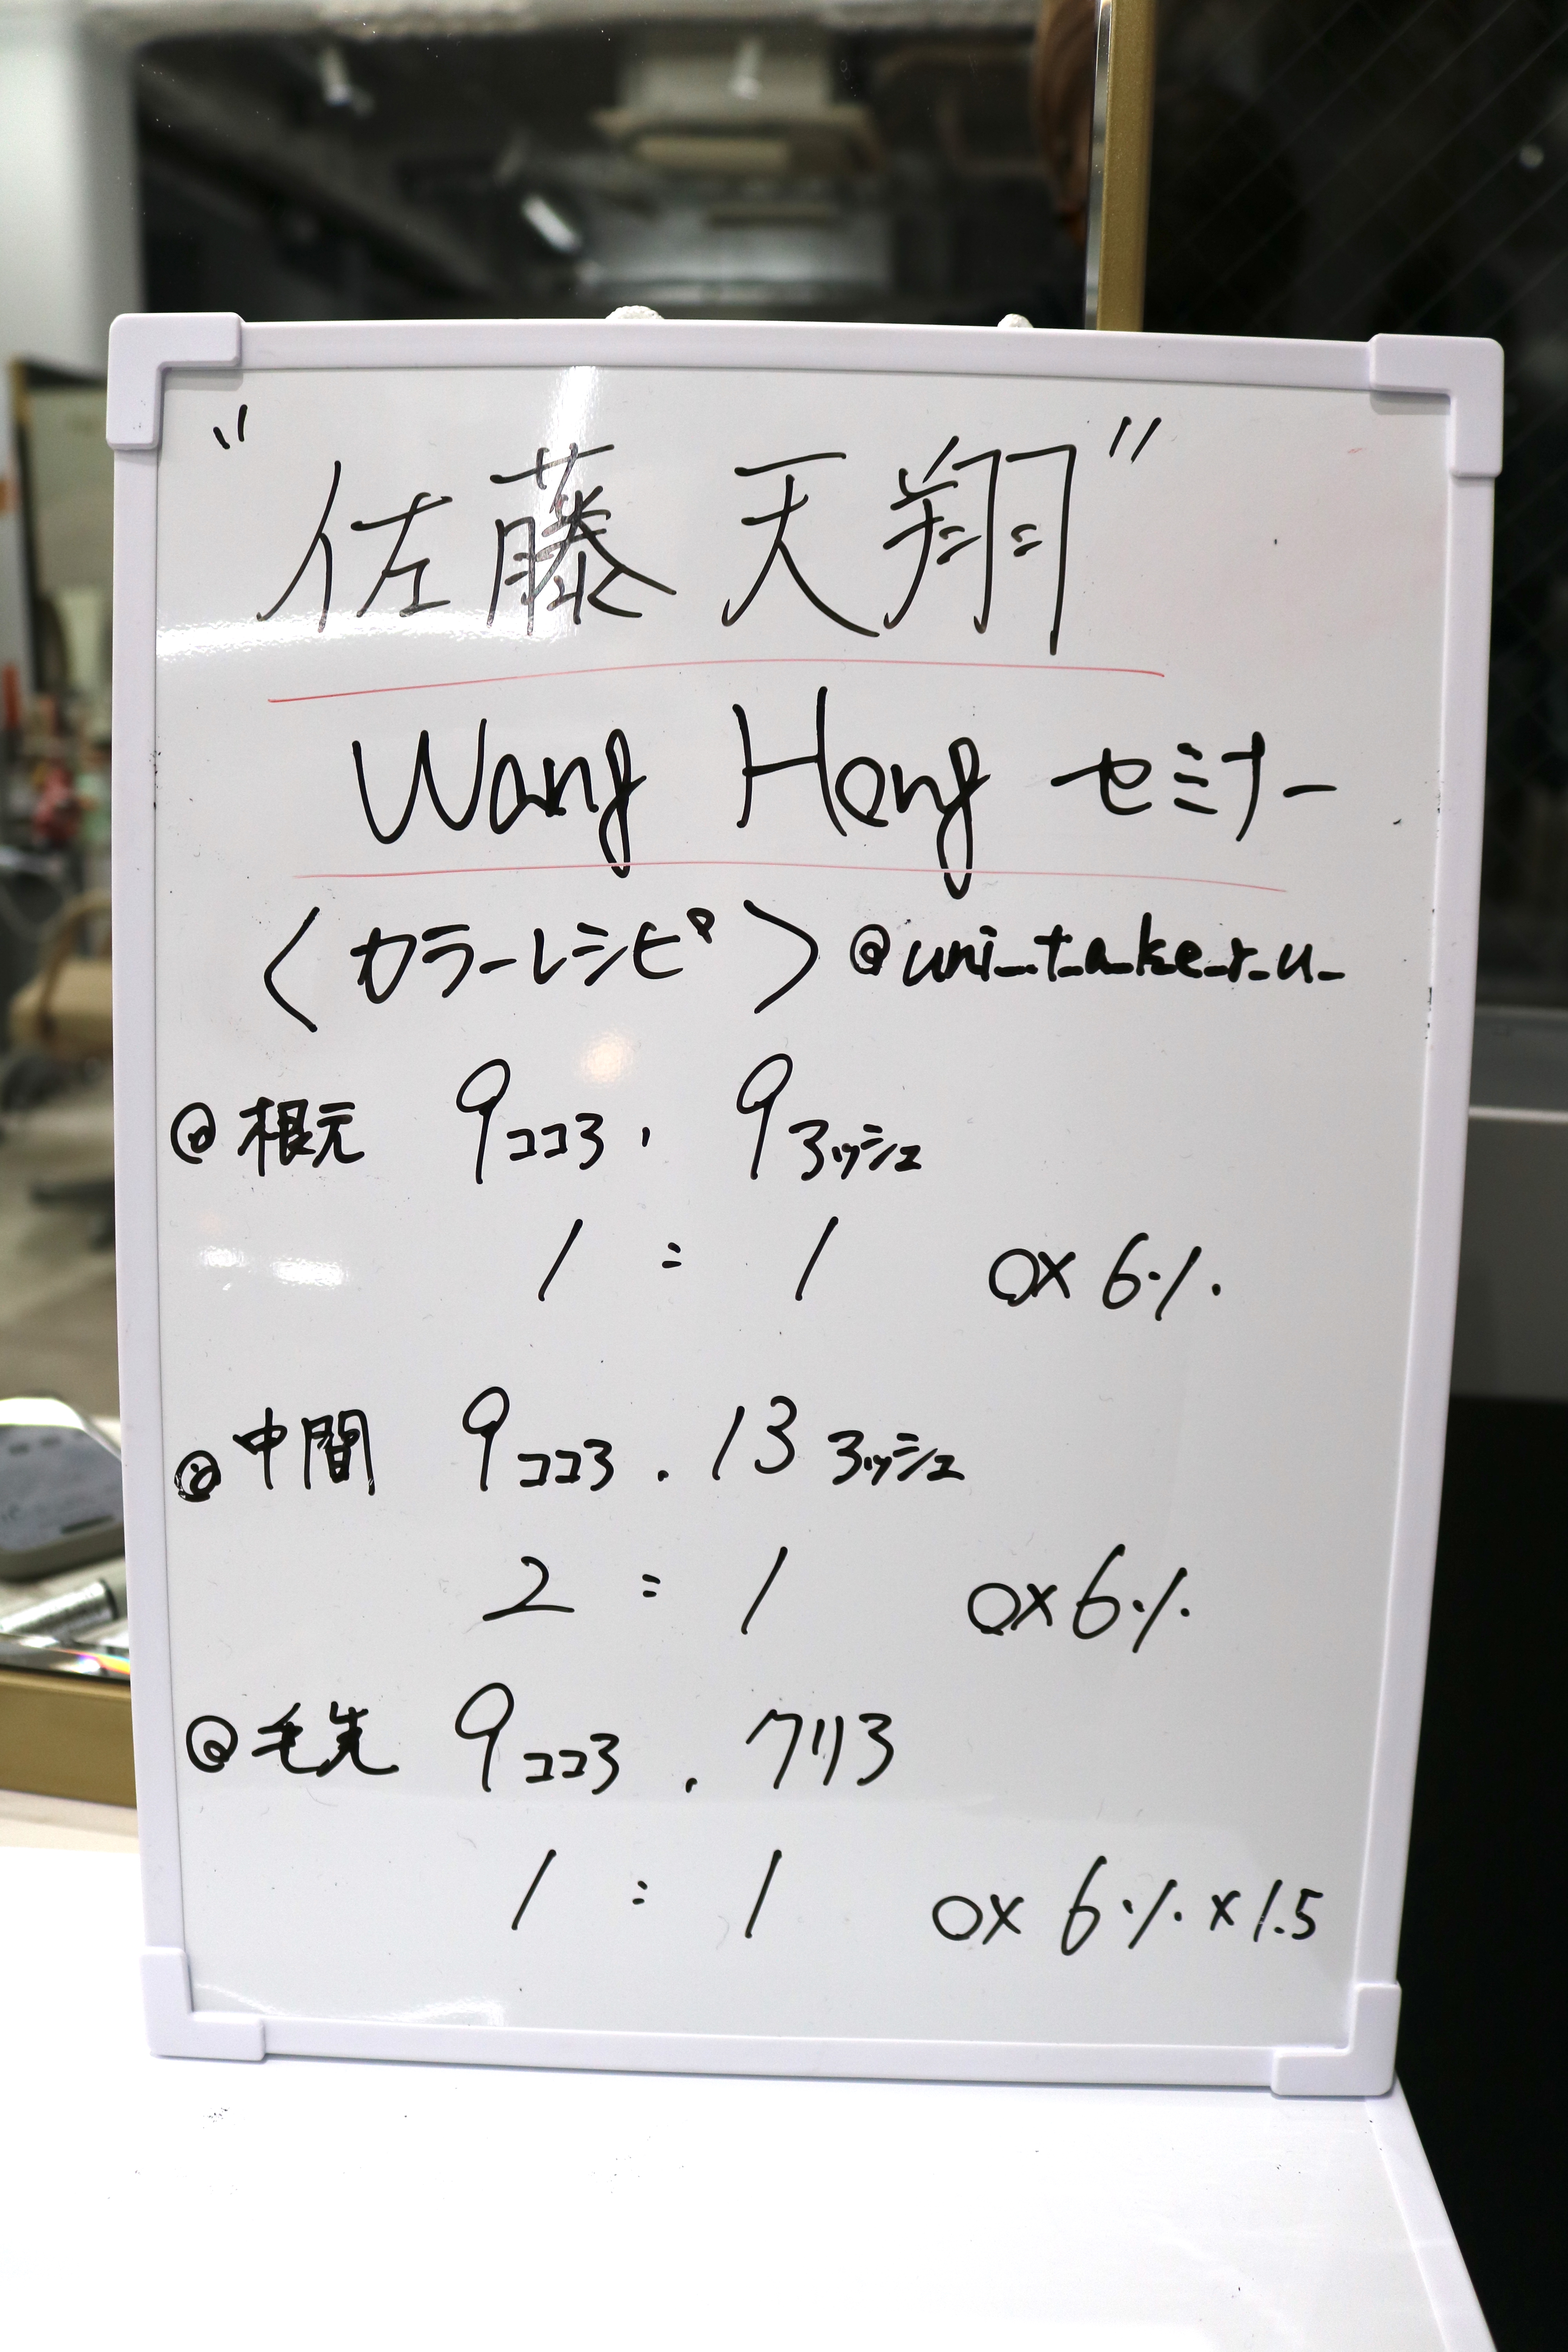 "佐藤 天翔"
Wang Hong セミナー
〈カラーレシピ〉@uni_t_a_k_e_r_u_
@根元 9ココア, 9アッシュ
1 : 1 OX 6%
@中間 9ココア. 13アッシュ
2 : 1 OX 6%
@毛先 9ココア. クリア
1 : 1 OX 6% x 1.5